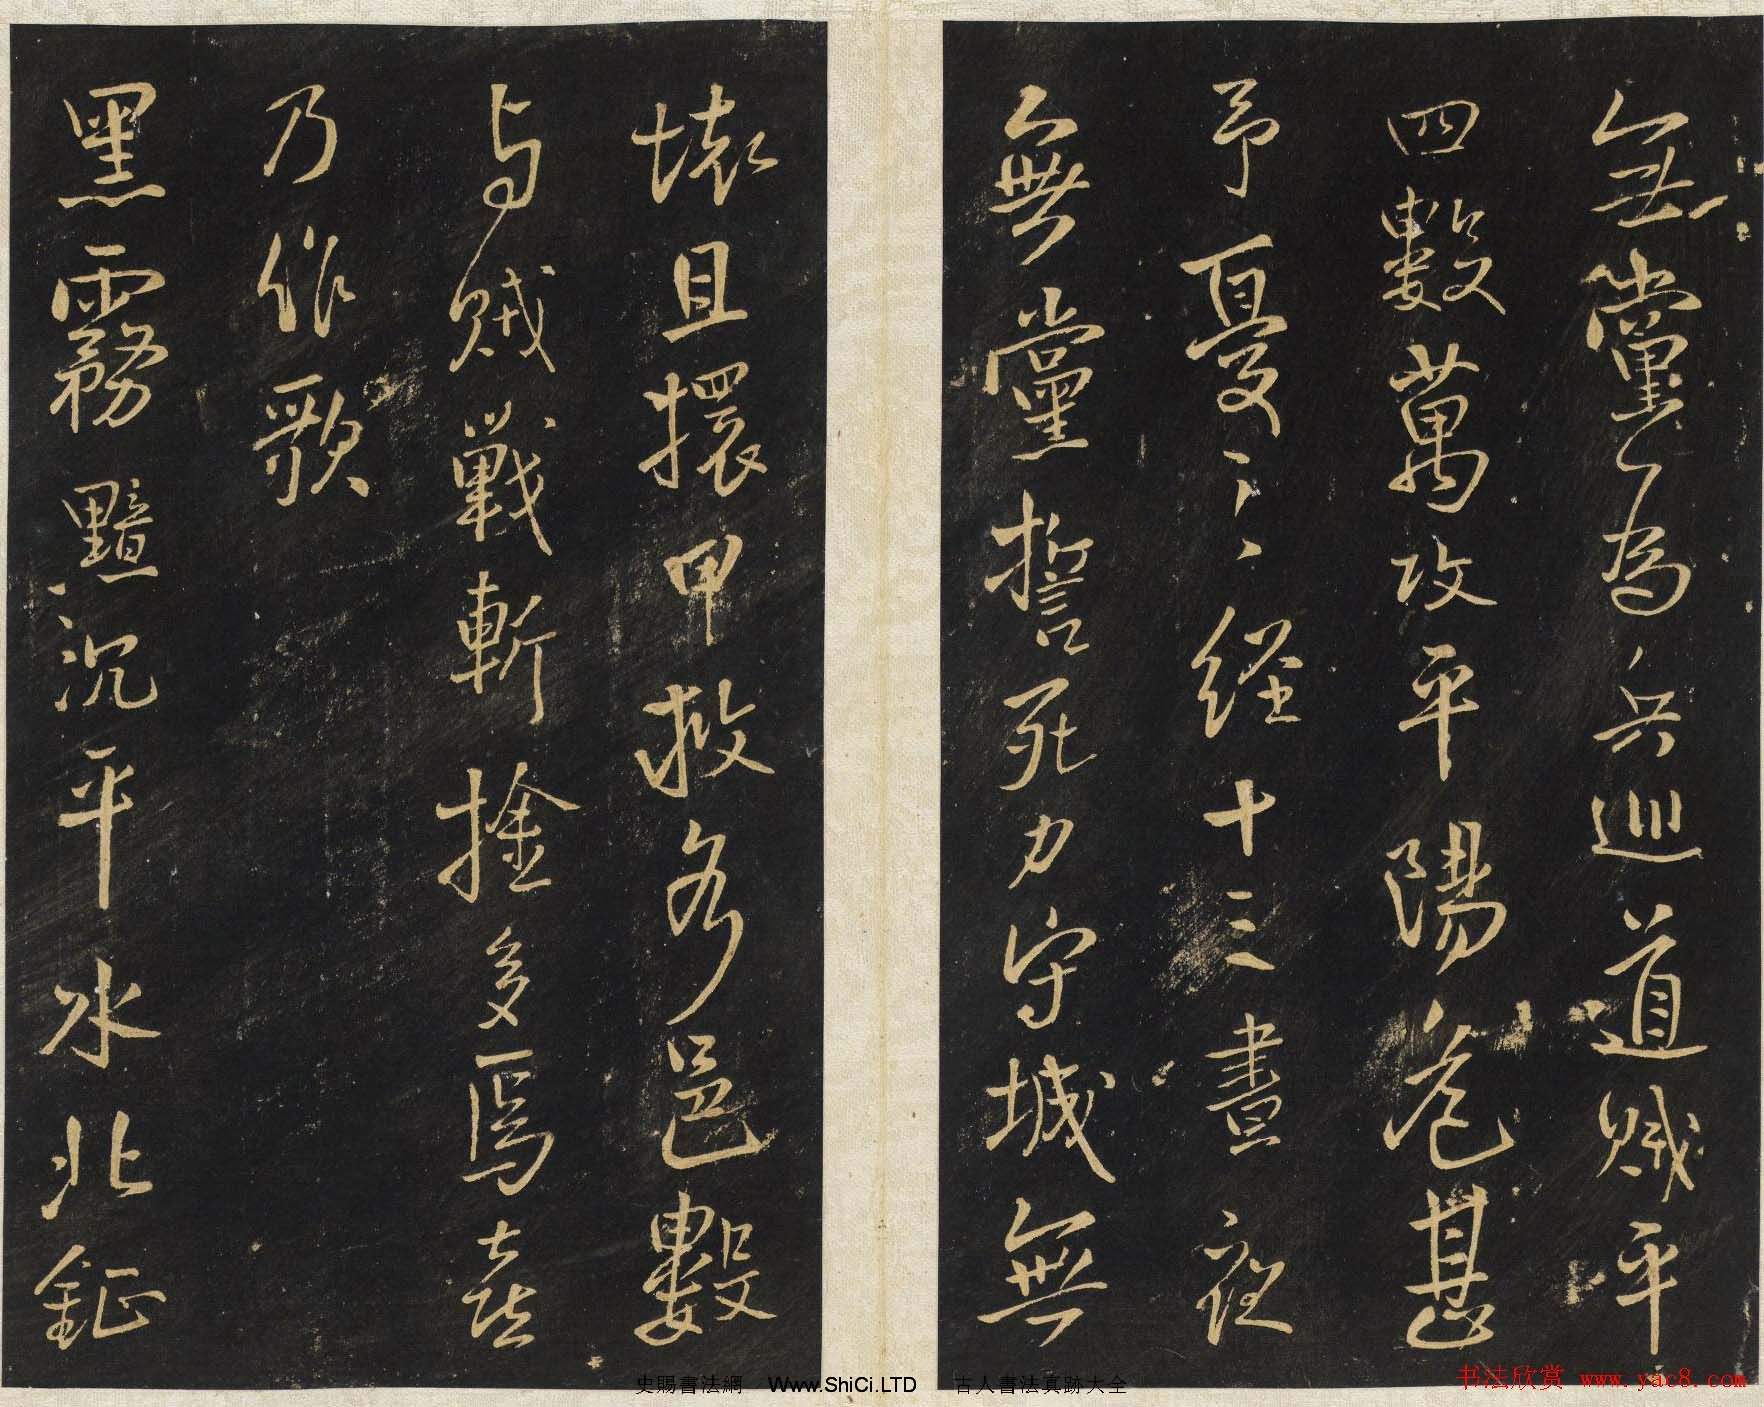 無黨為兵巡道賊平
四數萬攻平陽危甚
予憂之經十三晝夜
無黨誓死力守城無
壞且擐甲救各邑數
与賊戰斬捦多焉喜
乃作歌
黑霧黯沉平水北鉦
史賜書法網 Www.ShiCi.LTD 古人書法真跡大全
书法欣赏 www.yac8.com